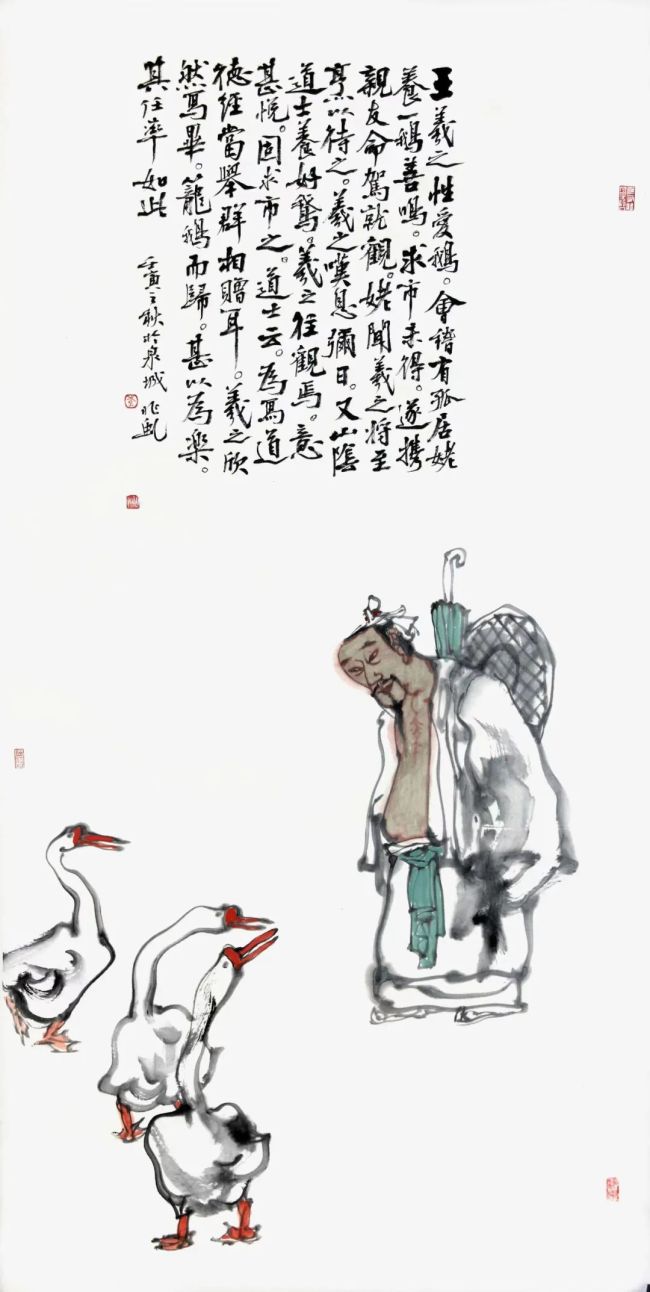 王羲之性愛鵝。會稽有孤居姥
養一鵝善鳴。求市未得。遂攜
親友命駕就觀。姥聞羲之將至
烹以待之。羲之嘆息彌日。又山陰
道士養好鵞。羲之往觀焉。意
甚悅。固求市之。道士云。為寫道
德經當舉群相贈耳。羲之欣
然寫畢。籠鵝而歸。甚以為樂。
其任率如此
壬寅之秋於泉城